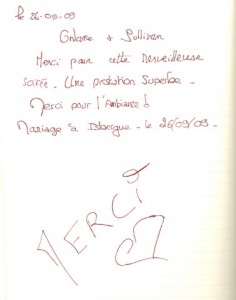 le 26-09-09
& Sullivan
Merci pour cette merveilleuse
soirée - Une prestation Superbe -
Merci pour l'Ambiance !
Mariage à - le 26/09/09 -
MERCI